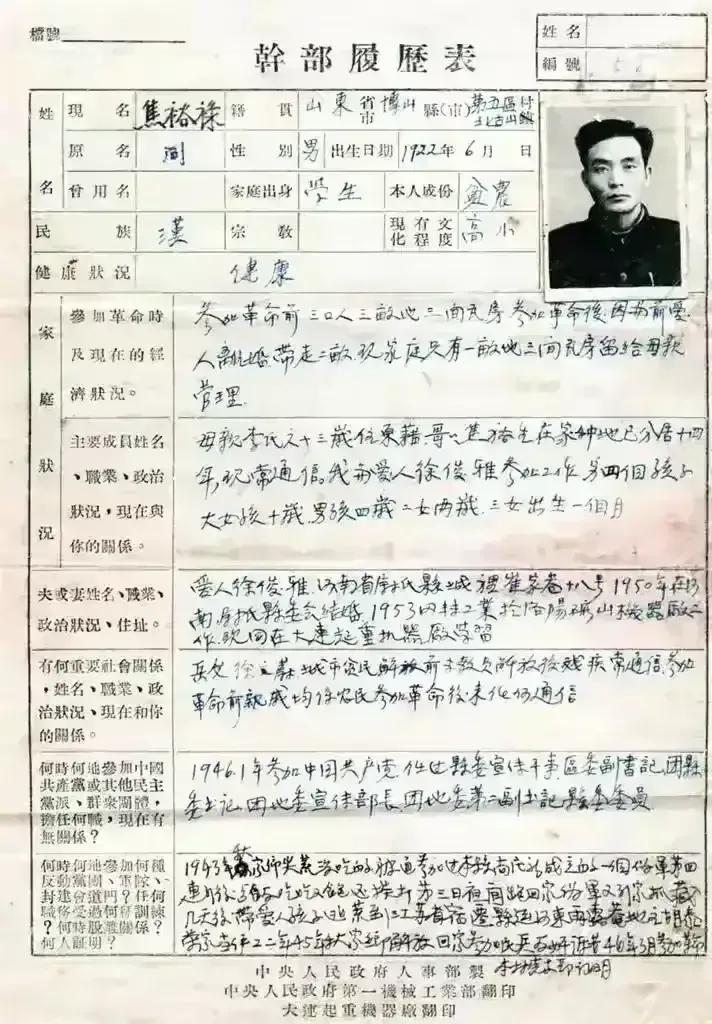 檔號
幹部履歷表
姓名
編號
姓名
現名 焦裕祿 籍貫 山東省市博山縣(市)第五區北崮山村鎮
原名 同 性別 男 出生日期 1922年6月 日
曾用名 家庭出身 學生 本人成份 貧農
民族 漢 宗教 現有文化程度 高小
健康狀況 健康
家庭狀況
參加革命時及現在的經濟狀況。
參加革命前三口人三畝地三間瓦房參加革命後,因為前愛
人離婚,帶走二畝,現家庭只有一畝地三間瓦房留給母親
管理
主要成員姓名、職業、政治狀況,現在與你的關係。
母親李氏六十三歲住東籍,哥哥焦裕生在家种地已分居十四
年,現常通信。我的愛人徐俊雅參加工作,另四個孩子
大女孩十歲,男孩四歲,二女两歲,三女出生一個月
夫或妻姓名、職業、政治狀況、住址。
愛人徐俊雅,河南省尉氏縣城裡崔家巷十八号1950年在河
南尉氏縣委会結婚,1953回扶工業於洛陽礦山機器廠工
作,現同在大連起重机器廠学習
有何重要社會關係,姓名、職業、政治狀況、現在和你的關係。
岳父徐 城市貧民解放前 解放後 常通信,參加
革命前親戚均係农民參加革命後未 何通信
何時何地參加中國共產黨或其他民主黨派、群衆團體,擔任何職,現在有無關係?
1946.1年參加中国共产党,任过縣委宣传干事區委副書記,团縣
委书记,团地委宣传部長,团地委第二副书記,縣委委員
何時何地參加何種反動黨團、軍隊、封建會道門?任何職務受過何種訓練?何時脫離關係?何人証明?
1943年秋家
連
几天後帶愛人孩子逃荒到江蘇省宿遷縣
回家參加民兵 46年3月參加幹
証明
中央人民政府人事部製
中央人民政府第一機械工業部翻印
大連起重機器廠翻印